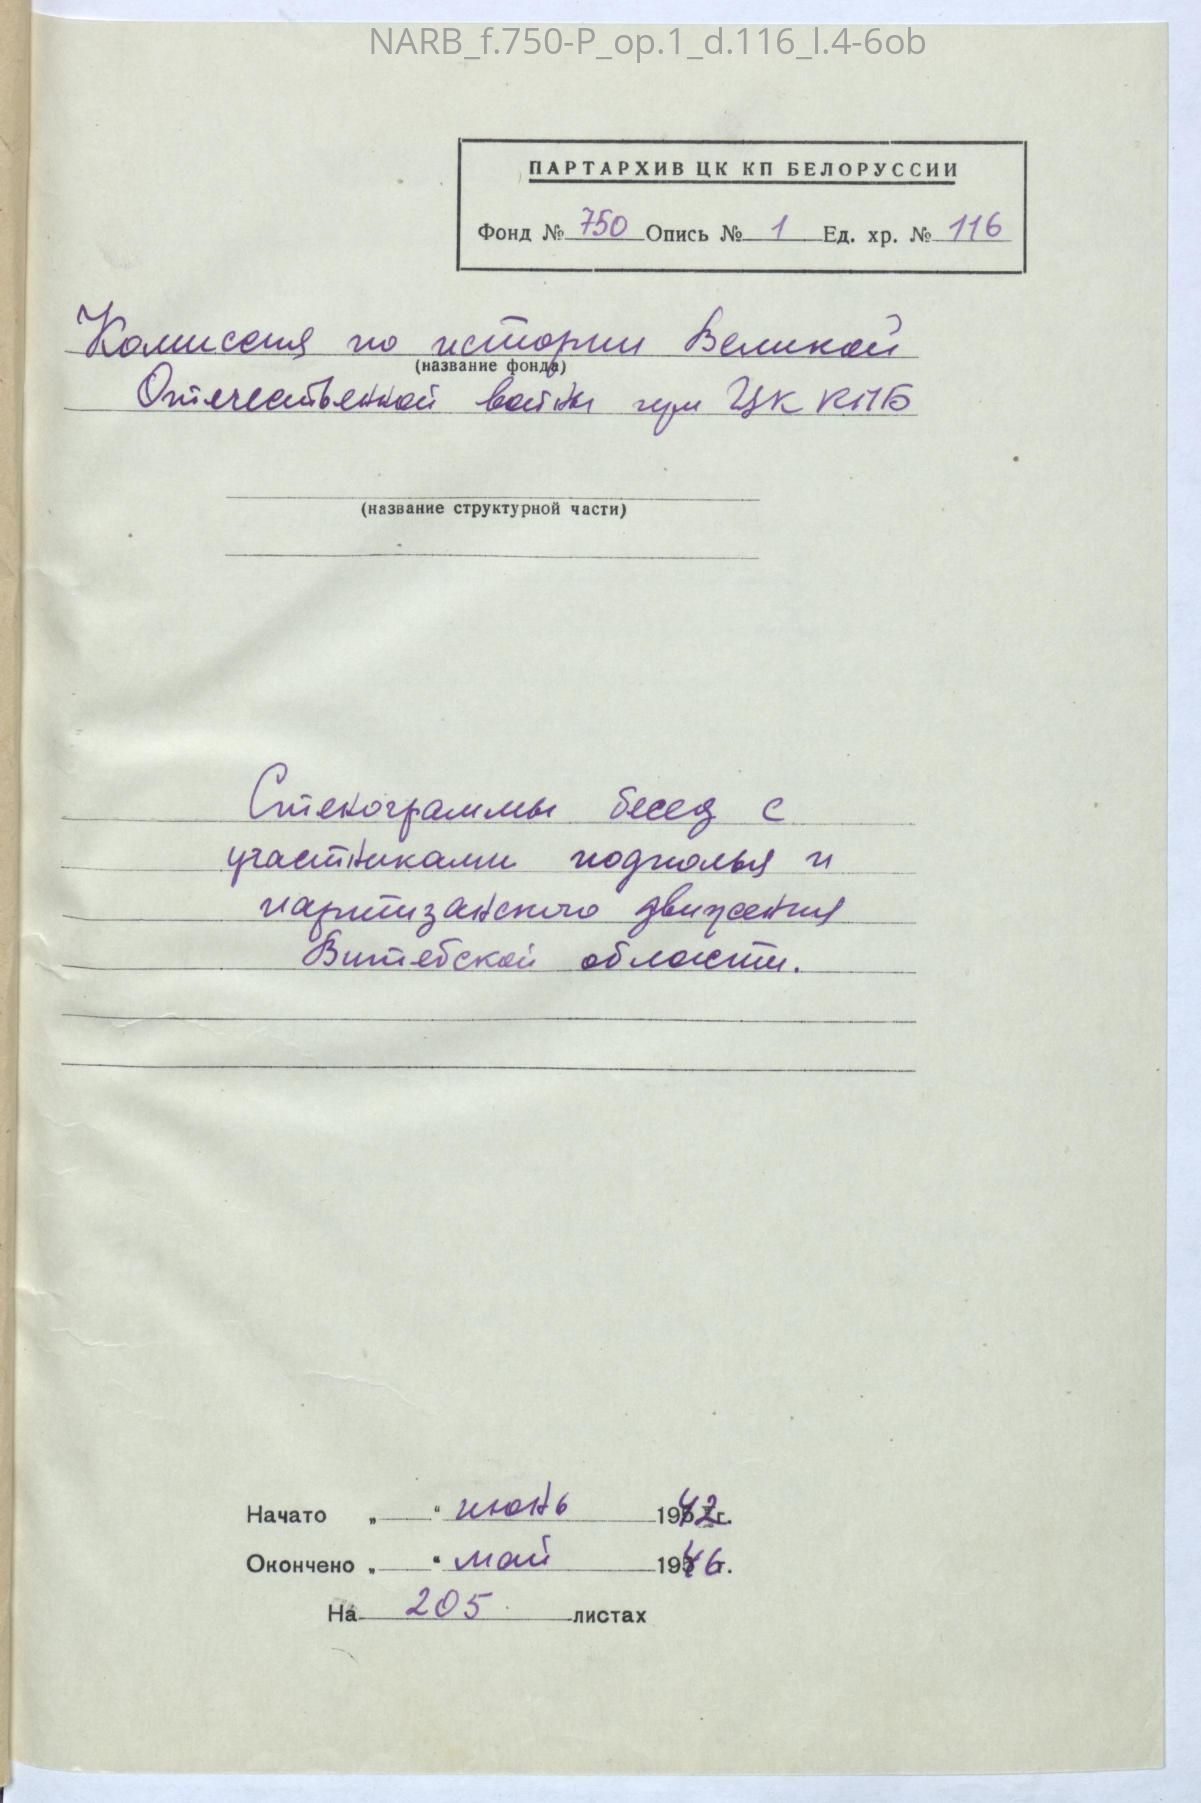 NARB_f.750-P_op.1_d.116_l.4-6ob
ПАРТАРХИВ ЦК КП БЕЛОРУССИИ
Фонд № 750 Опись № 1 Ед. хр. № 116
Комиссия по истории Великой
(название фонда)
Отечественной войны при ЦК КПБ
(название структурной части)
Стенограммы бесед с
участниками подполья и
партизанского движения
Витебской области.
Начато „ “ июнь 1942 г.
Окончено „ “ май 1946 г.
На 205 листах